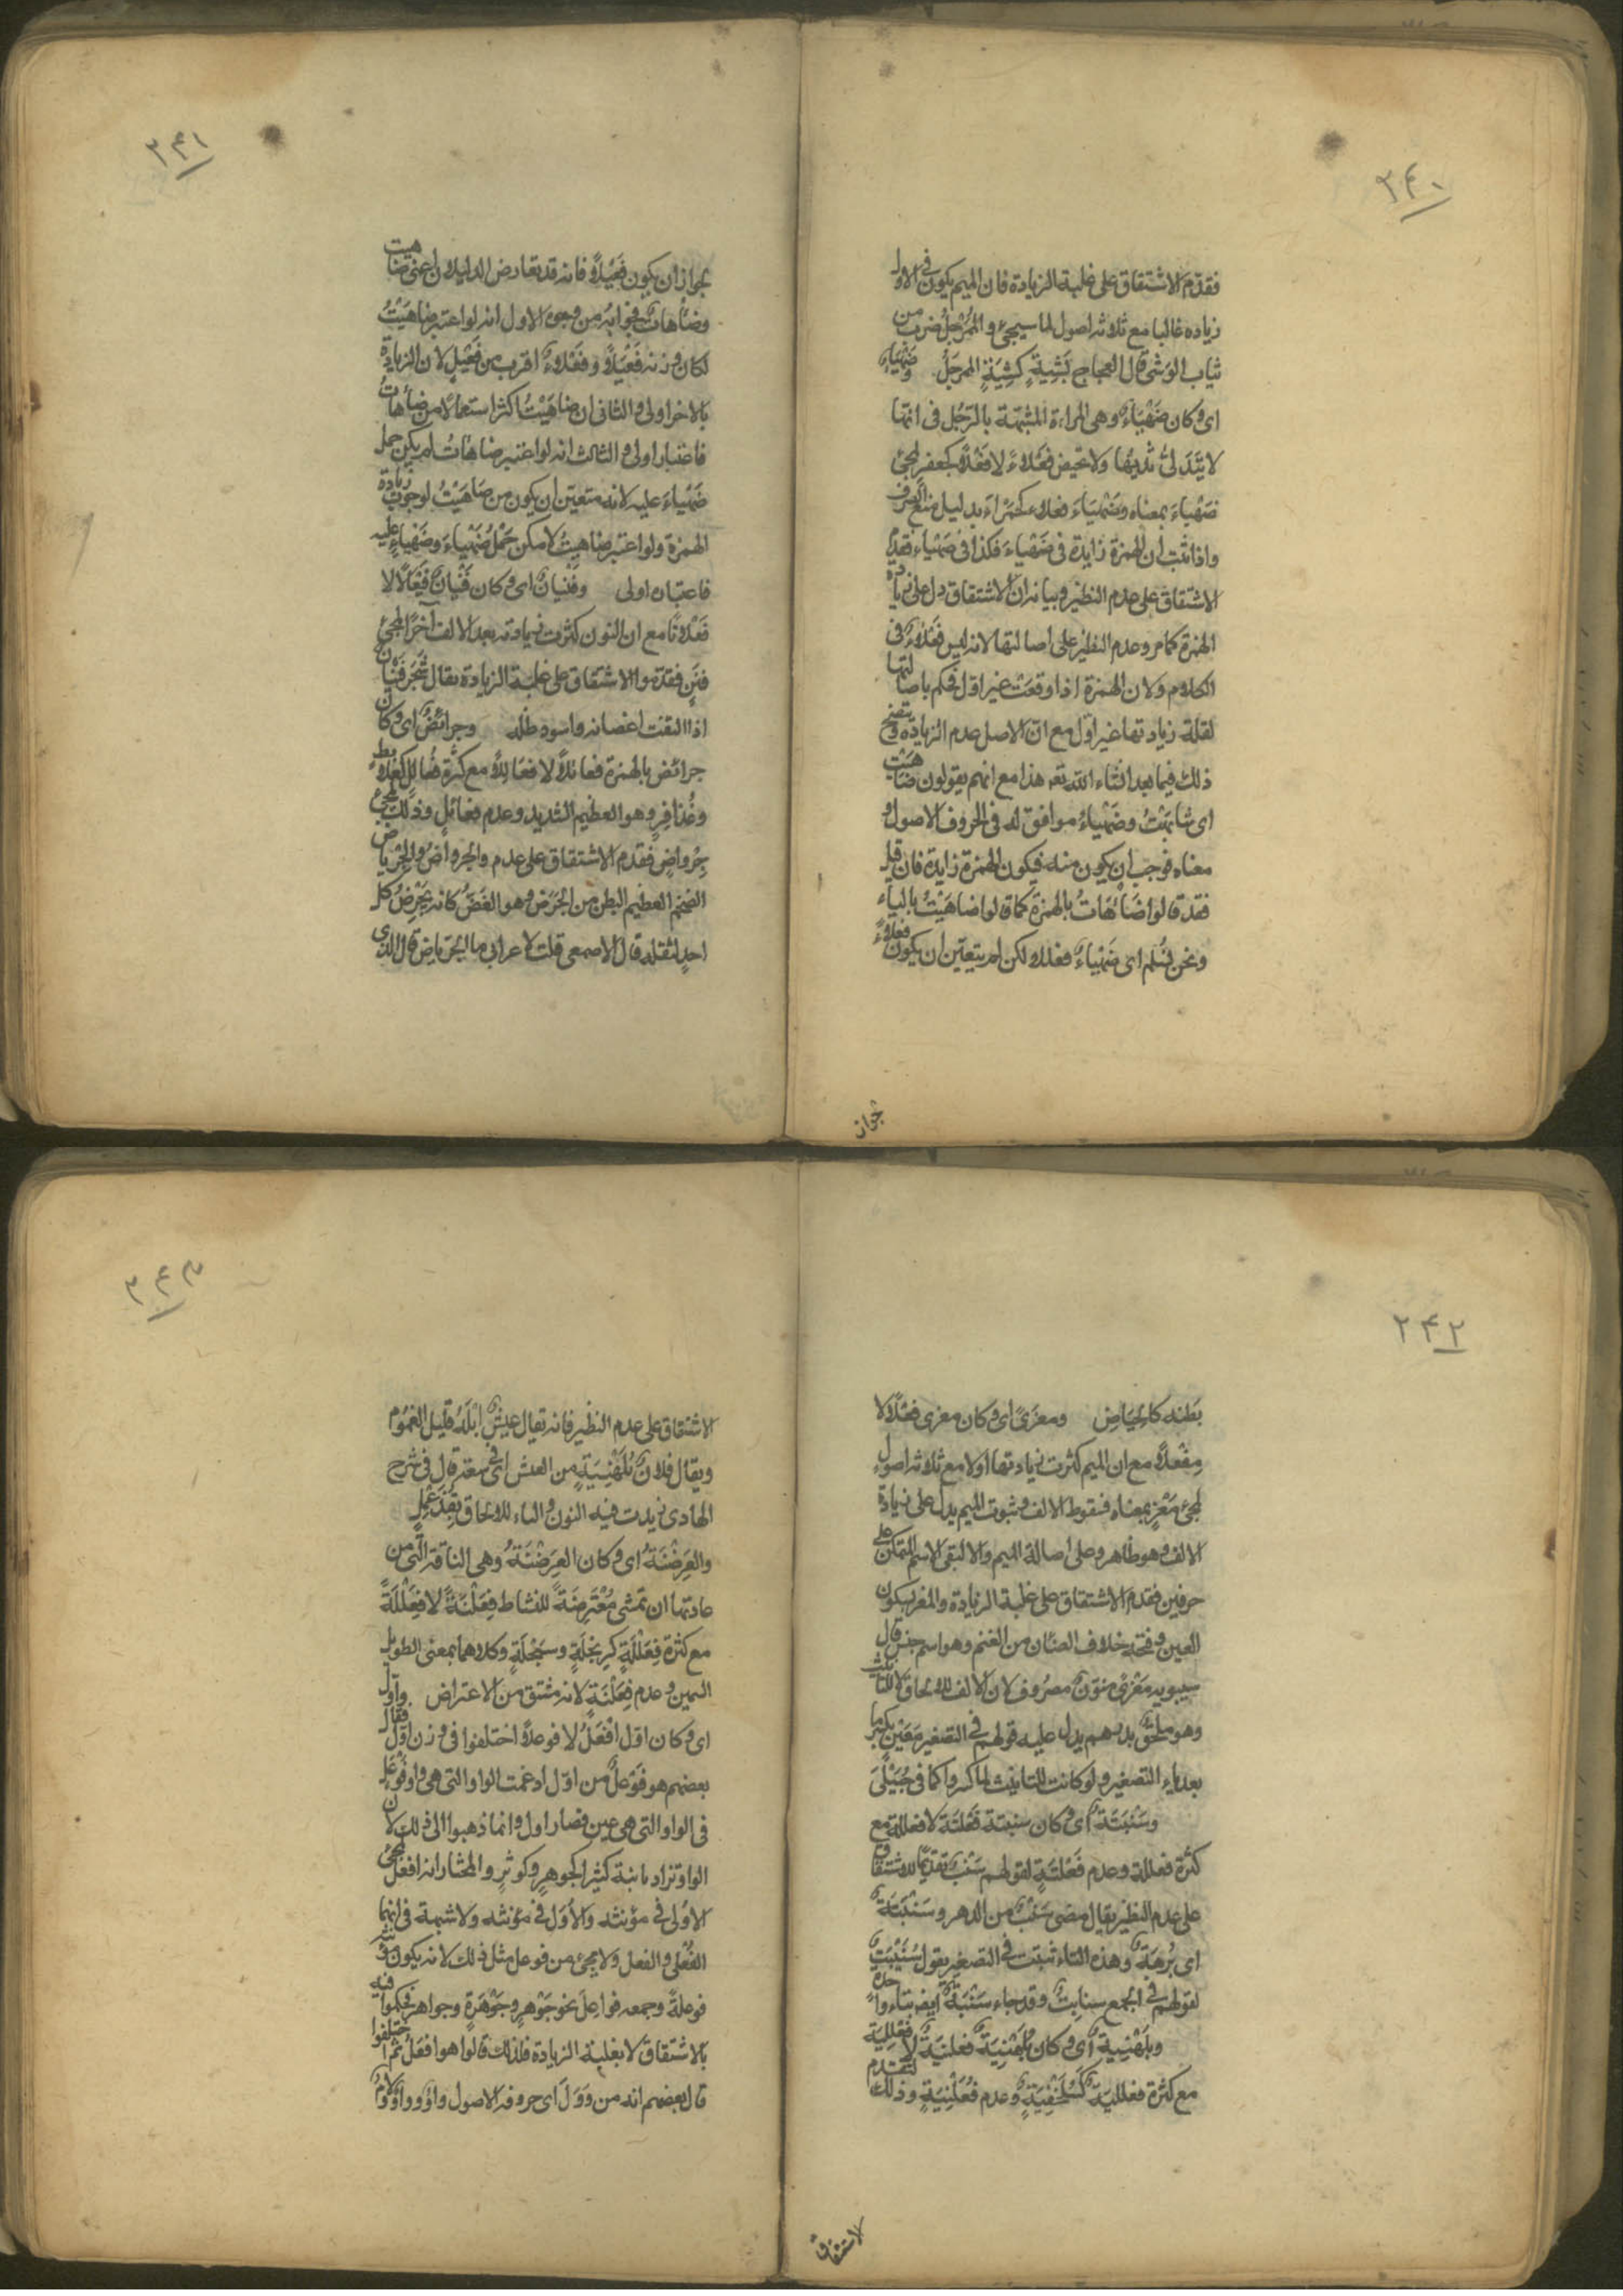 ٢۴٠
فقدم الاشتقاق على غلبة الزيادة فان الميم يكون في الاول
زيادة غالبا مع ثلاثه اصول لما سيجئ والمُرَجَّلُ ضرب من
ثياب الوَشى قال العجاج بِشِيَةٍ كَشِيَةِ المُمرجَلُ. وضَهْيَاءٍ
اى وكان ضَهْيَاءٌ وهى المراءة المشبهة بالرّجُل فى انّها
لا يَتَدَلىّ ثديها ولا تحيض فَعْلاءً لا فَعْللاً كجعفرٍ لمجئ
ضَهْياءَ بمعناه وضَهْيَاءَ فعلاء كحَمْراءَ بدليل منع الصرف
واذا ثبت ان الهمزة زايدة فى ضَهْياءَ فكذا فى ضَهْياء فقدّم
الاشتقاق على عدم النظير وبيانه ان الاشتقاق دل على زيادة
الهمزة كما مر وعدم النظير على اصالتها لانه ليس فَعْلَاءٌ فى
الكلام ولان الهمزة اذا وقعت غير اول حكم باصالتها
لقلة زيادتها غير اوّل مع انّ الاصل عدم الزيادة ويتضح
ذلك فيما بعد انشاء الله تع هذا مع انهم يقولون ضاهَيْتُ
اى شابَهْتُ وضَهْياءُ موافق له فى الحروف الاصول و
معناه فوجب ان يكون منه فيكون الهمزة زايدة فان قيل
فقد قالوا ضَاْهَأتُ بالهمزة كما قالوا ضاهَيْتُ بالياء
ونحن نُسلم اى ضَهْياءٌ فعلاء لكن لم يتعيّن ان يكون فعلاءً
جواز
٢۴١
لجواز ان يكون فَعْيَلاً فانه قد تعارض الدليلان اعنى ضاهيت
وضاْهأتُ فجوابه من وجوه الاول انه لو اعتبر ضاهَيْتُ
لكان وزنه فَعْيَلاً وفَعْلاءٌ اقرب من فَعْيَلٍ لان الزيادة
بالاخر اولى والثانى ان ضاهَيْتُ اكثر استعمالا من ضاْهأتُ
فاعتبار اولى والثالث انه لو اعتبر ضاهَأتُ لم يكن حمل
ضَهْياءَ عليه لانه متعيّن ان يكون من ضاهَيْتُ لوجوب زيادة
الهمزة ولو اعتبر ضاهيتُ لامكن حَمْلُ ضَهْياءَ وضَهْياءٍ عليه
فاعتباره اولى وفَيْنانٌ اى وكان فَيْنانٌ فَيْعالاً لا
فَعْلاناً مع ان النون كثرت زيادته بعد الالف آخرًا لمجئ
فَنَنٍ فقدّموا الاشتقاق على غلبة الزيادة يقال شَجَر فَيْنان
اذا التفت اغصانه واسود ظلّه وجرائضُ اى وكان
جرائض بالهمزة فعائلاً لا فعَاللاً مع كثرة فُعالِلٍ كعُلابِطٍ
وعُذافِرٍ وهو العظيم الشديد وعدم فعائلٍ وذلك لمجئ
جِرْواضٍ فقدم الاشتقاق على عدم والجِرواضُ والجِرْياض
الضخم العظيم البطن من الجَرَض وهو الغَصُّ كانه يَجْرِضُ كل
احدٍ لثقله قال الاصمعى قلت لاعرابى ما الجِرْياض قال الذى
٢۴٢
بَطنه كالحِياضِ ومعزًى اى وكان معزى فعْلاً لا
مِفْعلاً مع ان الميم كثرت زيادتها اولا مع ثلاثه اصول
لمجئ مَعْزٍ بمعناه فسقوط الالف وثبوت الميم يدل على زيادة
الالف وهو ظاهر وعلى اصالة الميم والا لبقى الاسم المتمكن على
حرفين فقدم الاشتقاق على غلبة الزيادة والمعز بسكون
العين وفتحه خلاف الضان من الغنم وهو اسم جنس قال
سيبويه مَعْزىً منوّنٌ مصروف لان الالف للالحاق لا للتانيث
وهو ملحقٌ بدرهم يدل عليه قولهم فى التصغير مَعَيْزٍ بكسر ما
بعد ياء التصغير ولو كانت للتانيث لما كسروا كما فى حُبَيْلَى
وسَنْبَتَةٌ اى وكان سنبتة فَعْلَتَة لا فعللة مع
كثرة فعللة وعدم فَعْلَتَةٍ لقولهم سَنْبٌ تقديمًا للاشتقاق
على عدم النظير يقال مضى سَنْبٌ من الدهر وسَنْبَتَةٌ
اى بُرهَةٌ وهذه التاء تثبت فى التصغير يقول سُنَيْبَتَةٌ
لقولهم فى الجمع سنابتُ وقد جاء سَنْبَةٌ ايضه بتاء واحدة
وبلَهْنِيةٌ اى وكان بُلَهْنِيَةٌ فعلنيَةً لا فعَلِلِيَةً
مع كثرة فعلليَةٍ كَسُلَحْفِيَةٍ وعدم فُعَلْنِيَةٍ وذلك لتقدم
الاشتقاق
٢۴٣
الاشتقاق على عدم النظير فانه يقال عَيشٌ اَبْلَهُ قليل الغمُوم
ويقال فلان فى بُلَهْنِيَةٍ من العيش اى فى سعة قال فى شرح
الهادى زيدت فيه النون والياء للالحاق بقُذَعْمِلٍ
والعِرَضْنَةُ اى وكان العِرَضْنَةُ وهى الناقة الّتى من
عادتها ان تمشى مُعْتَرِضةً للنشاط فِعَلْنَةً لا فِعَلْلَةً
مع كثرة فِعَلْلَةٍ كرِبَحْلَةٍ وسَبَحْلَةٍ وكلاهما بمعنى الطويل
السمين وعدم فِعَلْنَةٍ لانه مشتق من الاعتراض وأوّل
اى وكان اوّل اَفْعَلُ لا فوعلاً اختلفوا فى وزن اوّل فقال
بعضهم هو فَوْعلٌ من اوّل ادغمت الواو التى هى واو فوعل
فى الواو التى هى عين فصار اول وانما ذهبوا الى ذلك لان
الواو تزاد ثانية كثيرا كجوهرٍ وكوثرٍ والمختار انه افعل لمجئ
الاُولى فى مؤنثه والاُوَل فى مؤنثه ولا شبهة فى انهما
الفُعْلى والفعل ولا يجئ من فوعل مثل ذلك لانه يكون مؤنثه
فوعلةً وجمعه فواعِل نحو جَوْهرٍ وجَوْهَرةٍ وجواهر فحكموا فيه
بالاشتقاق لا بغلبة الزيادة فلذلك قالوا هو افعَل ثم اختلفوا
قال بعضهم انه من وَوَلَ اى حروفه الاصول واوٌ وواوٌ ولامٌ